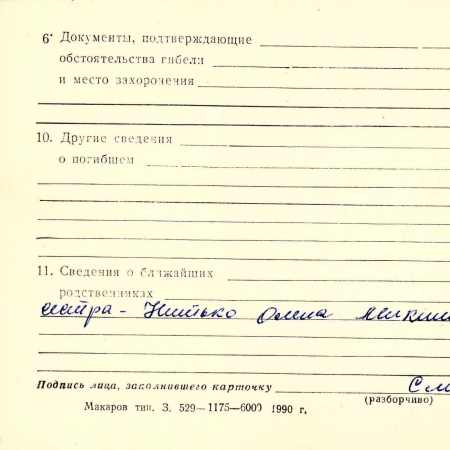 6. Документы, подтверждающие
обстоятельства гибели
и место захоронения
10. Другие сведения
о погибшем
11. Сведения о ближайших
родственниках
сестра - Нитько Олена
Подпись лица, заполнившего карточку
(разборчиво)
Макаров тип. З. 529—1175—6000 1990 г.